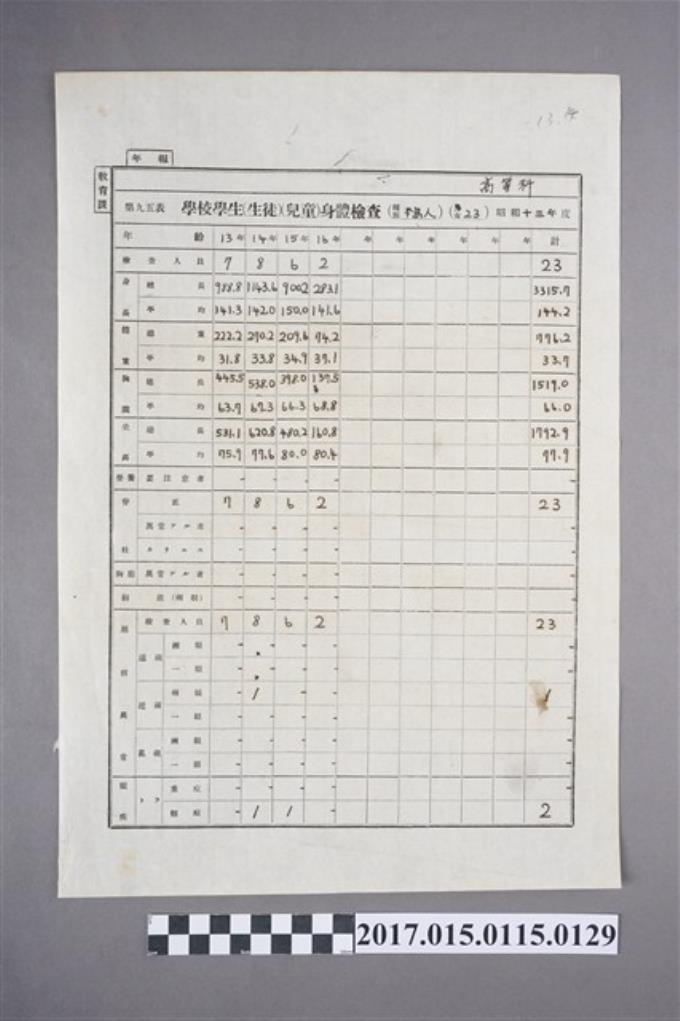 13.14
年報
教育課
高等科
第九五表 學校學生(生徒)(兒童)身體檢查 人) 23) 昭和十三年度
年齡 13年 14年 15年 16年 年 年 年 年 年 年 計
檢查人員 7 8 6 2 23
身長 總長 988.8 1143.6 900.2 283.1 3315.7
平均 141.3 142.0 150.0 141.6 144.2
體重 總重 222.2 270.2 209.6 74.2 776.2
平均 31.8 33.8 34.9 37.1 33.7
胸圍 總長 445.5 538.0 398.0 137.5 1519.0
平均 63.7 67.3 66.3 68.8 66.0
坐高 總長 531.1 620.8 480.2 160.8 1792.9
平均 75.9 77.6 80.0 80.4 77.9
營養 要注意者 - - - -
脊柱 正 7 8 6 2 23
異常アル者 - - - -
カリエス - - - -
胸廓 異常アル者 - - - -
- - - -
檢查人員 7 8 6 2 23
遠視 兩眼 - - - -
一眼 - - - -
近視 兩眼 - 1 - - 1
一眼 - - - -
亂視 兩眼 - - - -
一眼 - - - -
眼疾 トラ 重症 - - - -
輕症 - 1 1 - 2
2017.015.0115.0129